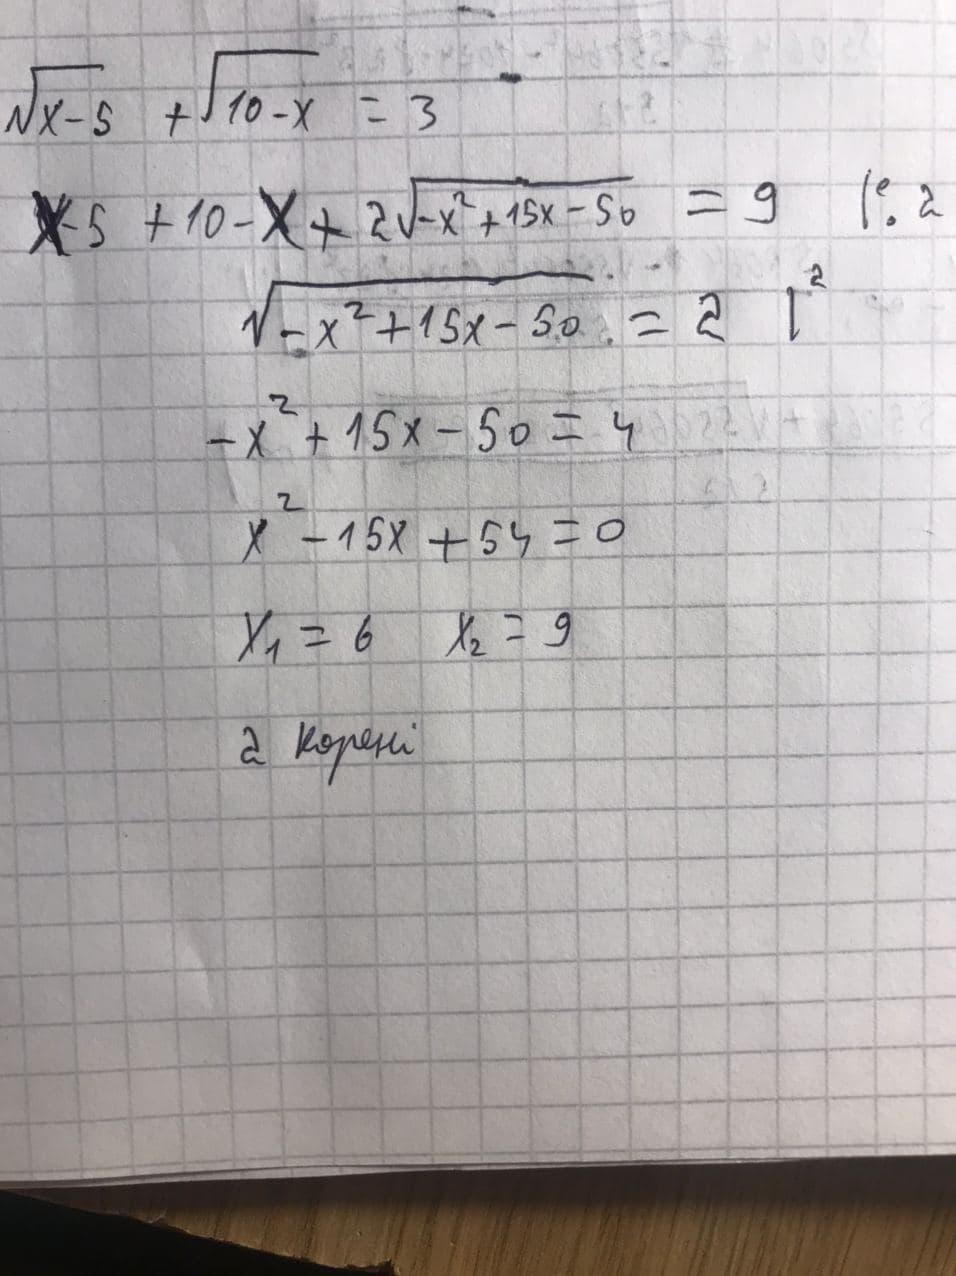 √x-5 + √10-x = 3
x-5 + 10-x + 2√-x²+15x-50 = 9 |: 2
√-x²+15x-50 = 2 |²
-x² + 15x - 50 = 4
x² - 15x + 54 = 0
x₁ = 6 x₂ = 9
2 корені